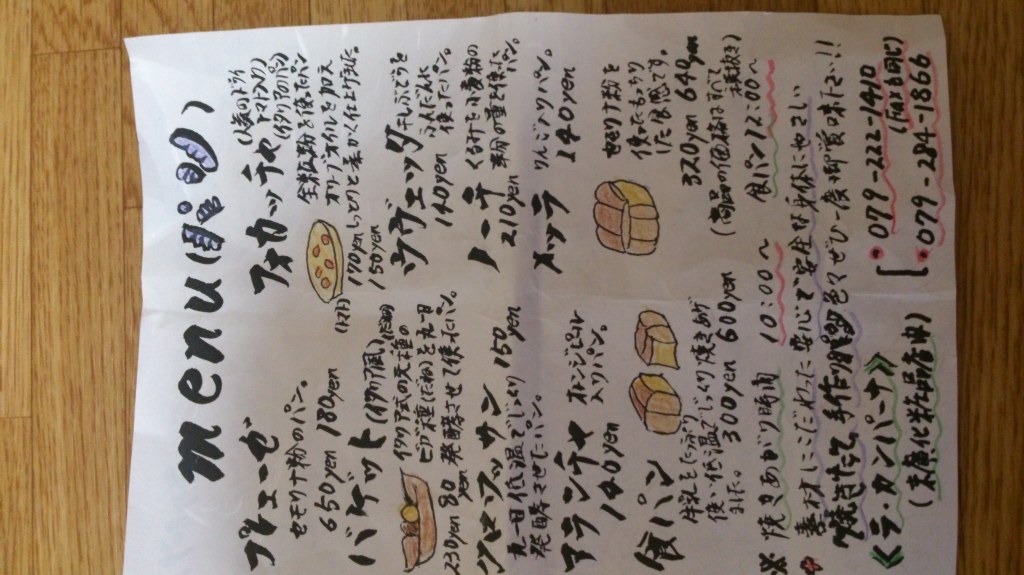 menu
プレミューゼ
セモリナ粉のパン。
650yen 180yen
バゲット(イタリア風)
イタリア式の天然
ビガ種(だね)を丸一日
発酵させて使ったパン。
230yen 80yen
クロワッサン 150yen
丸一日低温でじっくり
発酵させたパン。
アランチャ
オレンジピール
入りパン。
140yen
食パン
牛乳をたっぷり
使い低温でじっくり焼きあげ
ました。
300yen 600yen
フォカッチャ
(人気のドライ
トマト入り)
(イタリアのパン)
全粒粉を使ったパン
オリーブオイルを加え
しっとりと柔かく仕上げました。
(トマト)
170yen
150yen
ウヴェッタ
干しぶどうを
ふんだんに
使ったパン。
140yen
ノーチ
くるみを小麦粉の
粉の量と使った
パン。
210yen
メッラ
りんご入りパン。
140yen
セモリナ粉を
使ったもっちり
した食感です。
320yen 640yen
(商品の価格は全て
税抜き)
※焼きあがり時間 10:00〜 食パン12:00〜
素材にこだわった安心で安全な身体にやさしい
焼きたて、手作りパンを色々ぜひ一度御賞味下さい!!
≪ラ・カンパーナ≫
(末廣化粧品店内)
・079-222-1410
・079-284-1866